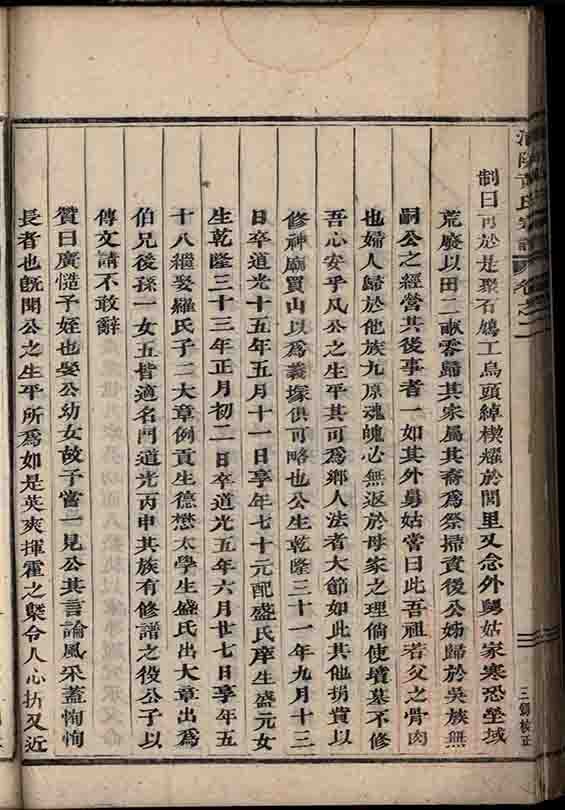 氏宗譜 卷之二
制曰可於是聚石鳩工烏頭綽楔耀於閭里又念外舅姑家寒恐塋域
荒廢以田二畝零歸其家屬其裔爲祭掃資後公姊歸於吳族無
嗣公之經營其後事者一如其外舅姑嘗曰此吾祖若父之骨肉
也婦人歸於他族九原魂魄必無返於母家之理倘使墳墓不修
吾心安乎凡公之生平其可爲鄉人法者大節如此其他捐貲以
修神廟買山以爲義塚俱可略也公生乾隆三十一年九月十三
日卒道光十五年五月十一日享年七十元配盛氏庠生盛元女
生乾隆三十三年正月初二日卒道光五年六月廿七日享年五
十八繼娶羅氏子二大章例貢生德懋太學生盛氏出大章出爲
伯兄後孫一女五皆適名門道光丙申其族有修譜之役公子以
傳文請不敢辭
贊曰廣慥予姪也娶公幼女故予嘗一見公其言論風采蓋恂恂
長者也旣聞公之生平所爲如是英爽揮霍之槩令人心折又近
三卿校正